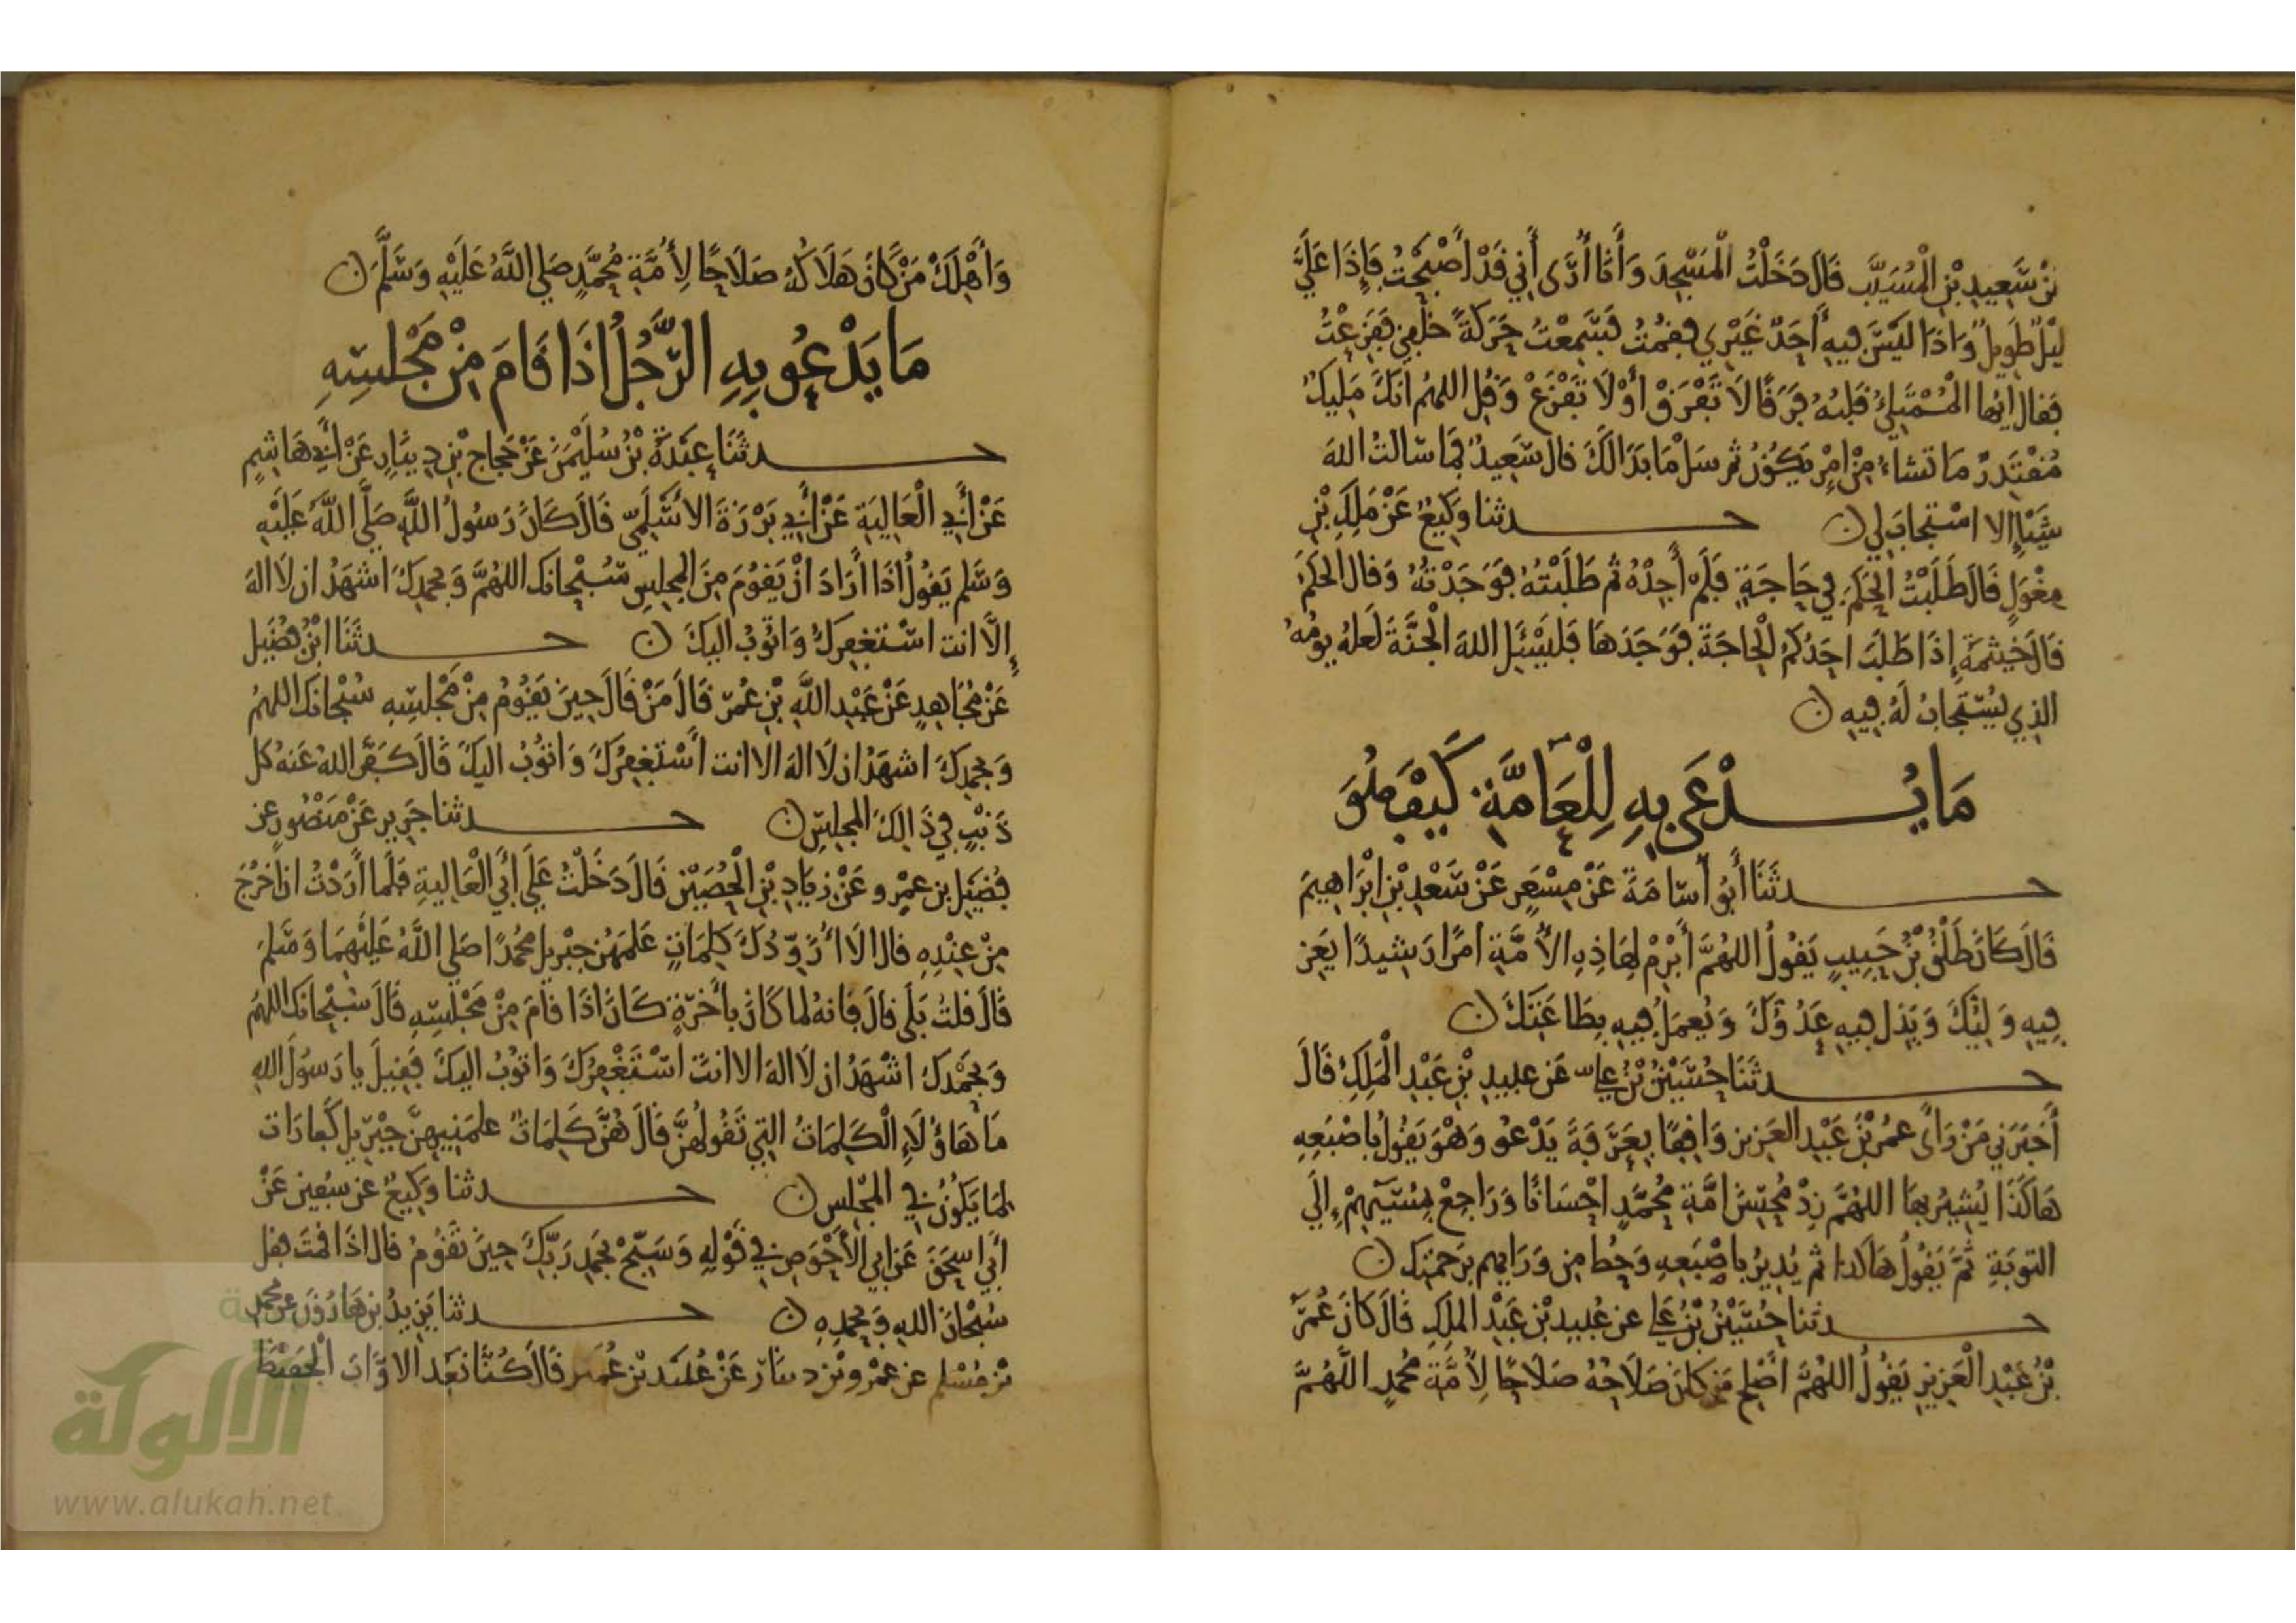 بْنُ سَعِيدِ بْنِ الْمُسَيَّبِ قَالَ دَخَلْتُ الْمَسْجِدَ وَأَنَا أَرَى أَنِي قَدْ أَصْبَحْتُ فَإِذَا عَلَيَّ
لَيْلٌ طَوِيلٌ وَاذَا لَيْسَ فِيهِ أَحَدٌ غَيْرِي فَقُمْتُ فَسَمِعْتُ حَرَكَةً خَلْفِي فَفَزِعْتُ
فَقَالَ ايُهَا الْمُمْتَلِئُ قَلْبُهُ فَرَقًا لَا تَفْرَقْ أَوْ لَا تَفْزَعْ وَقُلِ اللهُمَ انَكَ مَلِيكٌ
مُقْتَدِرٌ مَا تَشَاءُ مِنْ امْرٍ يَكُوُنُ ثم سَلْ مَا بَدَا لَكَ قَالَ سَعِيدٌ فَمَا سَالتُ اللهَ
شَيْئًا إِلا اسْتَجابَ لِي ن حدثنا وَكِيعٌ عَنْ مَلِكِ بْنِ
مِغْوَلٍ قَالَ طَلَبْتُ الحَكَمَ فِي حَاجَةٍ فَلَمْ أَجِدْهُ ثُم طَلَبْتُهُ فَوَجَدْتُهُ وَقَالَ الحَكَمُ
قَالَ خَيْثَمَةَ إِذَا طَلَبَ احَدُكمُ الْحَاجَةَ فَوَجَدَهَا فَليَسْئَلِ اللهَ الْجَنَّةَ لَعَلهُ يومُهُ
الذِي يُسْتَجَابُ لَهُ فِيهِ ن
مَا يُدْعَى بِهِ لِلْعَامَّةِ كَيْفَ هُوَ
حدثَنَا أَبُو أُسَامَةَ عَنْ مِسْعَرٍ عَنْ سَعْدِ بْنِ ابْرَاهِيمَ
قَالَ كَانَ طَلْقُ بْنُ حَبِيبٍ يَقُولُ اللهُمَّ أَبْرِمْ لِهَاذِهِ الأُمَّةِ امرًا رَشِيدًا يَعِزُ
فِيهِ وَلِيُّكَ وَيَذِل فِيهِ عَدُوُّكَ وَيُعمَلُ فِيهِ بِطَاعَتِكَ ن
حدثَنَا حُسَيْنُ بْنُ عَلي عَن عبيد بْنِ عَبْدِ الْمَلِكِ قَالَ
أَخْبَرَنِي مَنْ رَأَى عمُرَ بْنَ عَبْدِ العَزِيز وَاقِفًا بِعَرَفَةَ يَدْعُو وَهْوَ يَقُولُ بِاصْبَعِهِ
هَاكَذَا يُشِيرُ بهَا اللهُمَّ زِدْ مُحْسِنَ امَّةِ مُحَمَّدٍ احْسَانًا وَرَاجِعْ مِسِيْئِهِمْ إِلَي
التوبَةِ ثُمَّ يَقُولُ هَاكَذا ثم يُدِيرُ باصْبَعِهِ وَحُط مِن وَرَايهم بِرَحمتِكَ ن
حدثنا حُسَيْنُ بْنُ عَلي عن عُبيد بْنِ عَبْدِ المَلِكِ قَالَ كَانَ عُمَرُ
بْنُ عَبْدِ الْعَزِيزِ يَقُولُ اللهُمَّ أَصْلِح مَن كانَ صَلَاحُهُ صَلَاحًا لِأُمَّةِ مُحمدٍ اللَّهُمَّ
وَأَهْلِكْ مَنْ كَانَ هَلَاكُهُ صَلَاحًا لِأُمَّةِ مُحَمَّدٍ صَلي اللَّهُ عَلَيْهِ وَسَلَّمَ ن
مَا يَدْعُو بِهِ الرَّجُلُ اذَا قَامَ مِنْ مَجْلِسِهِ
حدثَنَا عَبْدَةُ بْنُ سُلَيْمَنَ عَنْ حَجاج بْنِ دِينَارٍ عَنْ أَبِي هَاشِمٍ
عَنْ أَبِي الْعَالِيَةِ عَنْ أَبِي بَرْزَةَ الأَسْلَمِيّ قَالَ كَانَ رَسُولُ اللَّهِ صَلَّى اللَّهُ عَلَيْهِ
وَسَّلم يَقُولُ اذَا أَرَادَ انْ يَقُومَ مِنَ المجلِسِ سُبْحَانَكَ اللهُمَّ وَبحَمدِكَ اشهَدُ ان لَا الهَ
إِلَّا انت اسْتغفِركَ وَاتُوبُ اليكَ ن حدثَنَا ابْنُ فُضَيل
عَنْ مُجَاهِدٍ عَنْ عَبْدِ اللَّهِ بْنِ عُمَرَ قَالَ مَنْ قَالَ حِينَ يَقُومُ مِنْ مَجْلِسِهِ سُبْحَانَكَ اللهُمُ
وَبحَمدِكَ اشهَدُ ان لَا الهَ الا انت أَسْتَغفِرُكَ وَاتُوبُ اليكَ قَالَ كَفَّرَ اللهُ عَنهُ كل
ذَنْبٍ فِي ذَالِكَ المَجلِسِ ن حدثنا جَرِير عَنْ مَنْصُورٍ عن
فُضَيْلِ بن عمْرٍو عَنْ زِيَادِ بْنِ الْحُصَيْنِ قَالَ دَخَلْتُ عَلَى أَبِي الْعَالِيةِ فَلَما أَرَدْتُ ان أَخْرُجَ
مِنْ عِنْدِهِ قَالَ الَا ازَوِّدُكَ كَلِمَاتٍ عَلمَهُن جِبْريلُ محُمدًا صَلي اللَّهُ عَلَيْهِمَا وَسَلَمَ
قَالَ قلتُ بَلَى قالَ فَانهُ لما كَانَ بأَخَرَةٍ كَانَ اذَا قَامَ مِنْ مَجْلِسِهِ قَالَ سُبْحَانَكَ اللهُمَ
وَبِحَمْدِكَ اشْهَدُ ان لَا الهَ الا انتَ اسْتَغْفِرُكَ وَاتُوبُ اليكَ فَقِيلَ يا رَسُولَ اللهِ
مَا هَاؤُلَاءِ الْكَلِمَاتُ التِي تَقُولُهُنَّ قَالَ هُنَّ كَلِمَاتٌ علمَنِيهِنَّ جِبْرِيل كَفارَاتٌ
لِمَا يَكُونُ فِي المَجْلِس ن حدثنا وَكِيعٌ عن سُفين عَنْ
أَبِي اسحَقَ عَن ابي الأَحْوَصِ فِي قَوْلِهِ وَسَبِّحْ بحَمدِ رَبِّكَ حِينَ تَقُومُ قَالَ اذَا قمتَ فقل
سُبْحَانَ اللهِ وَبحَمدِهِ ن حدثنا يَزِيدُ بن هَارُونَ عن محمد
بْن مُسْلِم عن عَمْرو بْن دينَارٍ عَنْ عُبَيْد بْن عُمَير قَالَ كُنَّا نَعُد الاوَّابَ الْحَفِيظَ
الألوكة
www.alukah.net